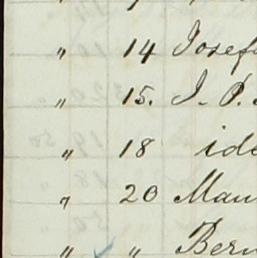 " 14 Josef
" 15. J. P.
" 18 ide
" 20 Mau
" " Bern